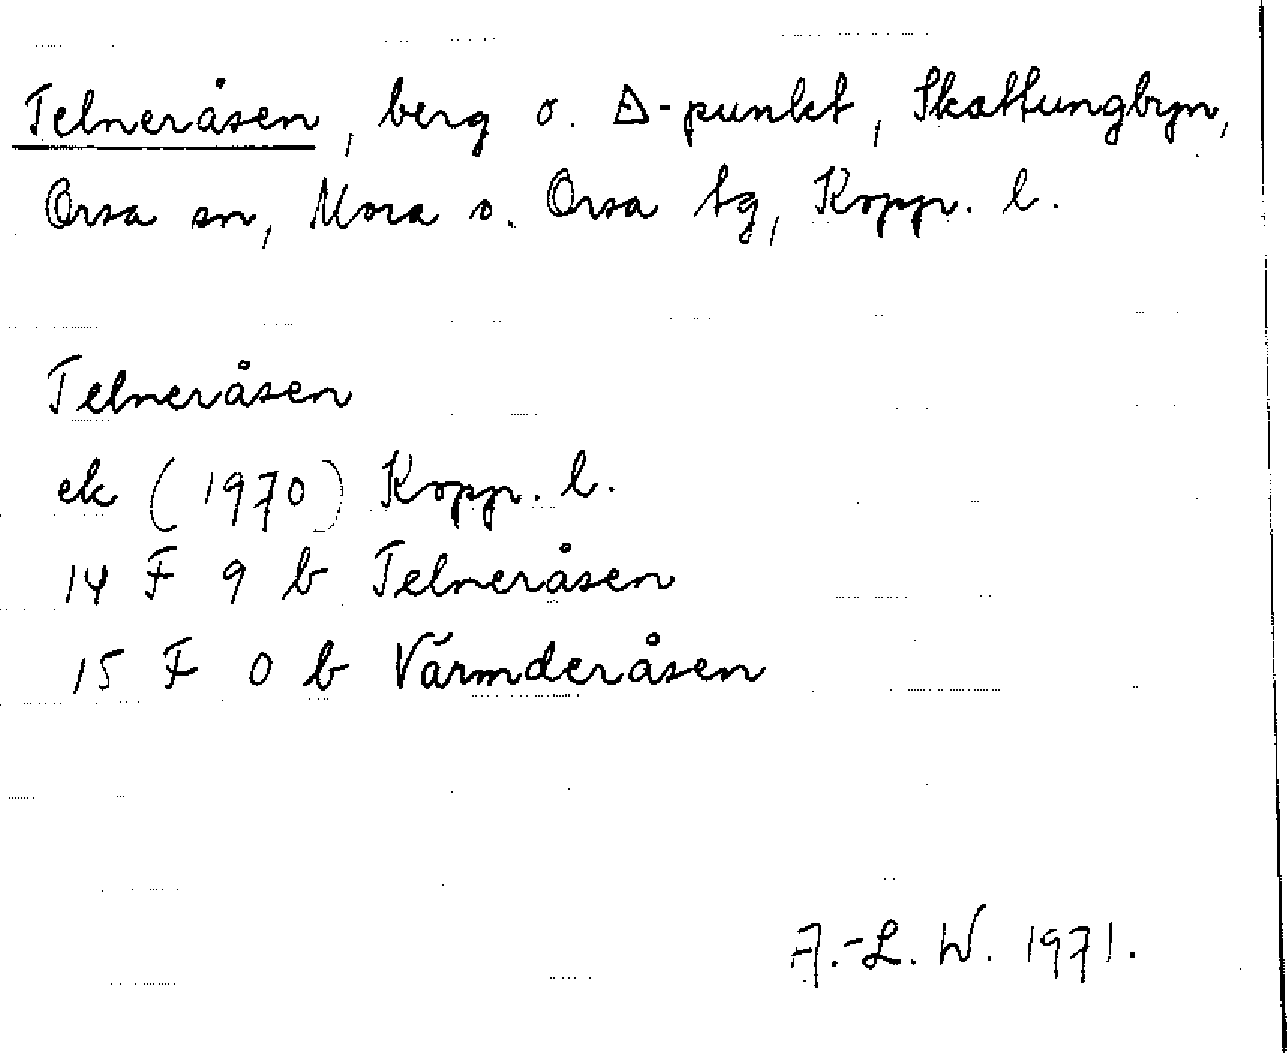 Telneråsen, berg o. Δ-punkt, Skattungbyn,
Orsa sn, Mora o. Orsa tg, Kopp. l.
Telneråsen
ek (1970) Kopp. l.
14 F 9 b Telneråsen
15 F 0 b Värmderåsen
A.-L. W. 1971.